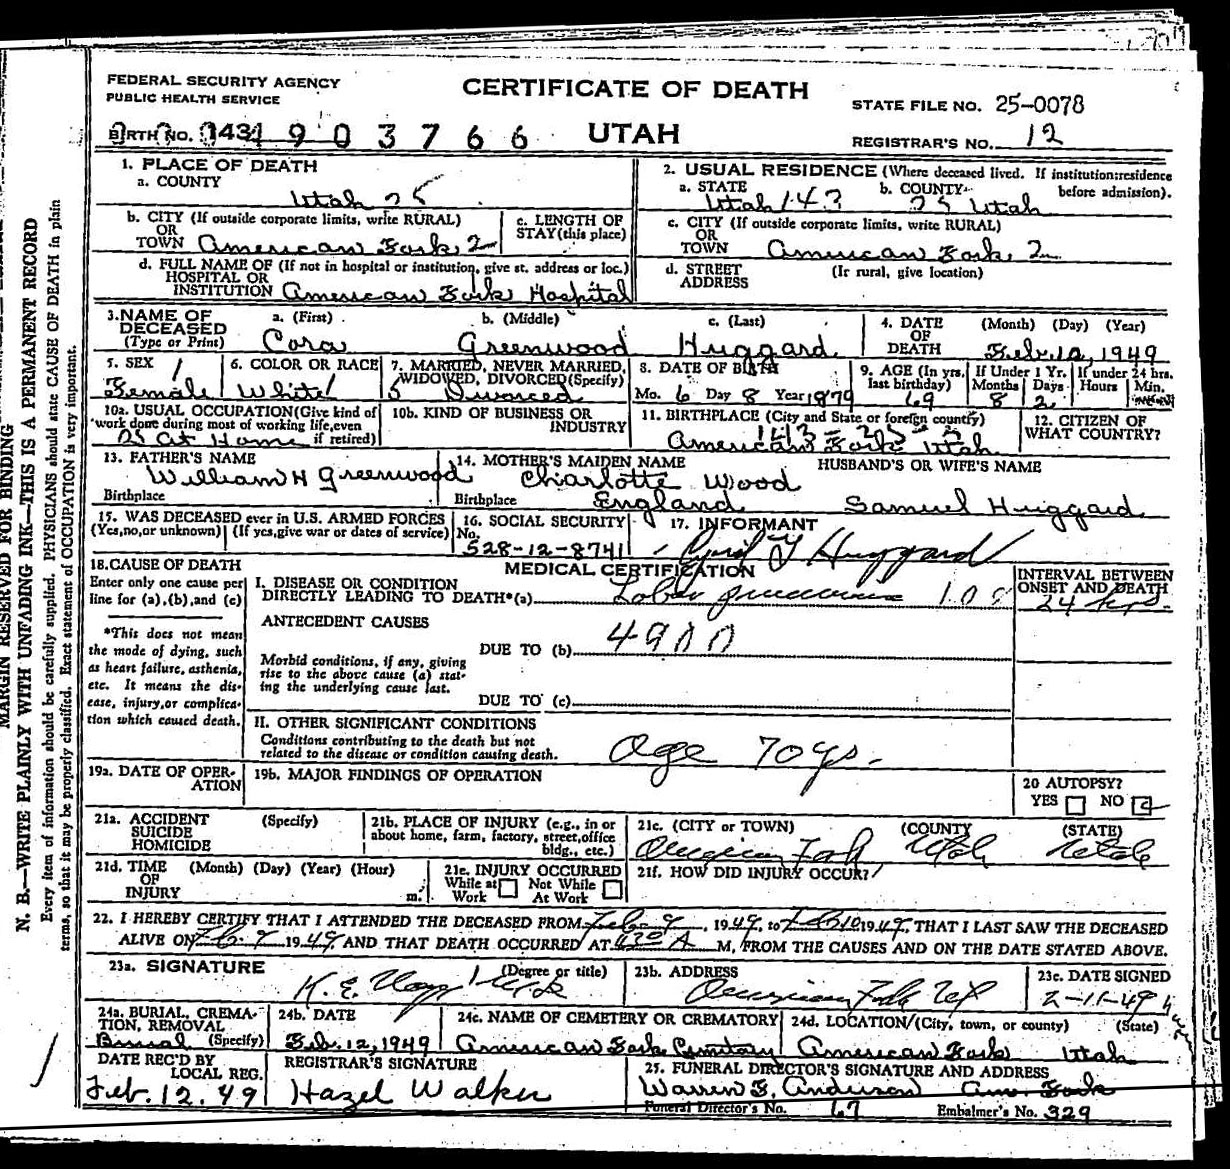 FEDERAL SECURITY AGENCY
PUBLIC HEALTH SERVICE
CERTIFICATE OF DEATH
STATE FILE NO. 25-0078
BIRTH NO. 143 4 9 0 3 7 6 6
UTAH
REGISTRAR'S NO. 12
1. PLACE OF DEATH
a. COUNTY
Utah 25
2. USUAL RESIDENCE (Where deceased lived. If institution:residence before admission).
a. STATE Utah 143 b. COUNTY 25 Utah
b. CITY (If outside corporate limits, write RURAL)
OR
TOWN American Fork 2
c. LENGTH OF
STAY (this place)
c. CITY (If outside corporate limits, write RURAL)
OR
TOWN American Fork 2
d. FULL NAME OF (If not in hospital or institution, give st. address or loc.)
HOSPITAL OR
INSTITUTION American Fork Hospital
d. STREET (Ir rural, give location)
ADDRESS
3. NAME OF
DECEASED
(Type or Print)
a. (First) b. (Middle) c. (Last)
Cora Greenwood Huggard
4. DATE (Month) (Day) (Year)
OF
DEATH Feb. 10, 1949
5. SEX 1
Female
6. COLOR OR RACE
White 1
7. MARRIED, NEVER MARRIED,
WIDOWED, DIVORCED (Specify)
5 Divorced
8. DATE OF BIRTH
Mo. 6 Day 8 Year 1879
9. AGE (In yrs. last birthday)
69
If Under 1 Yr.
Months Days
8 2
If under 24 hrs.
Hours Min.
10a. USUAL OCCUPATION (Give kind of
work done during most of working life, even
if retired)
At Home
10b. KIND OF BUSINESS OR
INDUSTRY
11. BIRTHPLACE (City and State or foreign country)
American Fork Utah
12. CITIZEN OF
WHAT COUNTRY?
13. FATHER'S NAME
William H Greenwood
Birthplace
14. MOTHER'S MAIDEN NAME
Charlotte Wood
Birthplace England
HUSBAND'S OR WIFE'S NAME
Samuel Huggard
15. WAS DECEASED ever in U.S. ARMED FORCES
(Yes, no, or unknown) (If yes, give war or dates of service)
16. SOCIAL SECURITY
No.
528-12-8741
17. INFORMANT
Huggard
18. CAUSE OF DEATH
Enter only one cause per
line for (a), (b), and (c)
*This does not mean
the mode of dying, such
as heart failure, asthenia,
etc. It means the dis-
ease, injury, or complica-
tion which caused death.
MEDICAL CERTIFICATION
I. DISEASE OR CONDITION
DIRECTLY LEADING TO DEATH*(a) Lobar pneumonia 108
INTERVAL BETWEEN
ONSET AND DEATH
24 hrs.
ANTECEDENT CAUSES
4900
DUE TO (b)
Morbid conditions, if any, giving
rise to the above cause (a) stat-
ing the underlying cause last.
DUE TO (c)
II. OTHER SIGNIFICANT CONDITIONS
Conditions contributing to the death but not
related to the disease or condition causing death.
Age 70 ys.
19a. DATE OF OPER-
ATION
19b. MAJOR FINDINGS OF OPERATION
20 AUTOPSY?
YES NO
21a. ACCIDENT (Specify)
SUICIDE
HOMICIDE
21b. PLACE OF INJURY (e.g., in or
about home, farm, factory, street, office
bldg., etc.)
21c. (CITY or TOWN) (COUNTY) (STATE)
American Fork, Utah Utah
21d. TIME (Month) (Day) (Year) (Hour)
OF
INJURY m.
21e. INJURY OCCURRED
While at Work Not While At Work
21f. HOW DID INJURY OCCUR?
22. I HEREBY CERTIFY THAT I ATTENDED THE DECEASED FROM Feb. 9, 1949, to Feb 10 1949, THAT I LAST SAW THE DECEASED
ALIVE ON Feb. 9 1949 AND THAT DEATH OCCURRED AT 430 A M, FROM THE CAUSES AND ON THE DATE STATED ABOVE.
23a. SIGNATURE (Degree or title)
K. E.
23b. ADDRESS
American Fork Ut
23c. DATE SIGNED
2-11-49
24a. BURIAL, CREMA-
TION, REMOVAL
Burial (Specify)
24b. DATE
Feb. 12, 1949
24c. NAME OF CEMETERY OR CREMATORY
American Fork Cemetery
24d. LOCATION (City, town, or county) (State)
American Fork Utah
DATE REC'D BY
LOCAL REG.
Feb. 12. 49
REGISTRAR'S SIGNATURE
Hazel Walker
25. FUNERAL DIRECTOR'S SIGNATURE AND ADDRESS
Warren F. Anderson Am. Fork
Funeral Director's No. 67 Embalmer's No. 329
MARGIN RESERVED FOR BINDING
N. B.—WRITE PLAINLY WITH UNFADING INK—THIS IS A PERMANENT RECORD
Every item of information should be carefully supplied. PHYSICIANS should state CAUSE OF DEATH in plain
terms, so that it may be properly classified. Exact statement of OCCUPATION is very important.